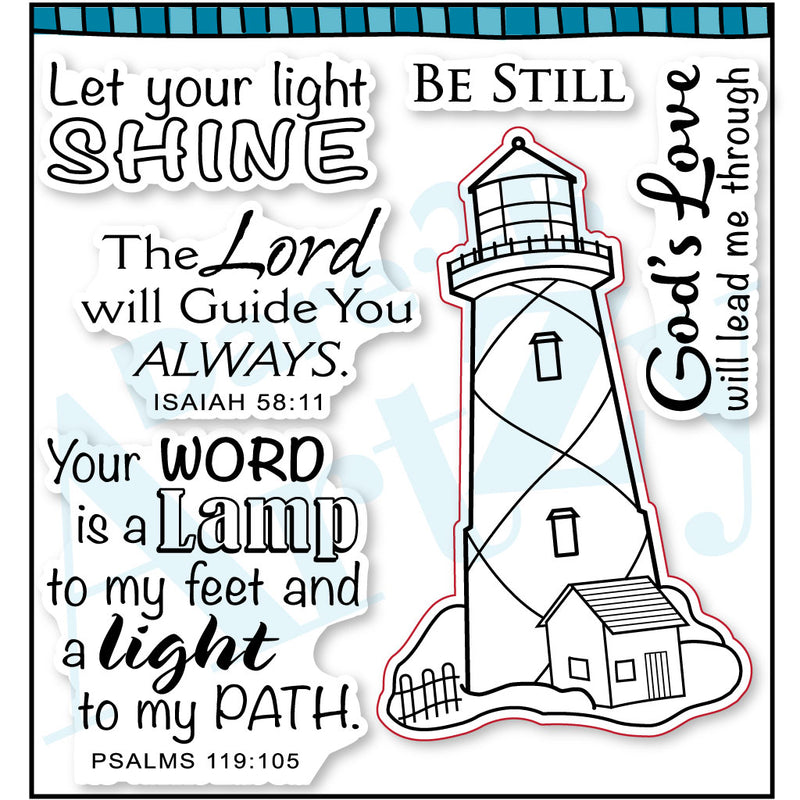 Let your light
SHINE
BE STILL
God's Love
will lead me through
The Lord
will Guide You
ALWAYS.
ISAIAH 58:11
Your WORD
is a Lamp
to my feet and
a light
to my PATH.
PSALMS 119:105